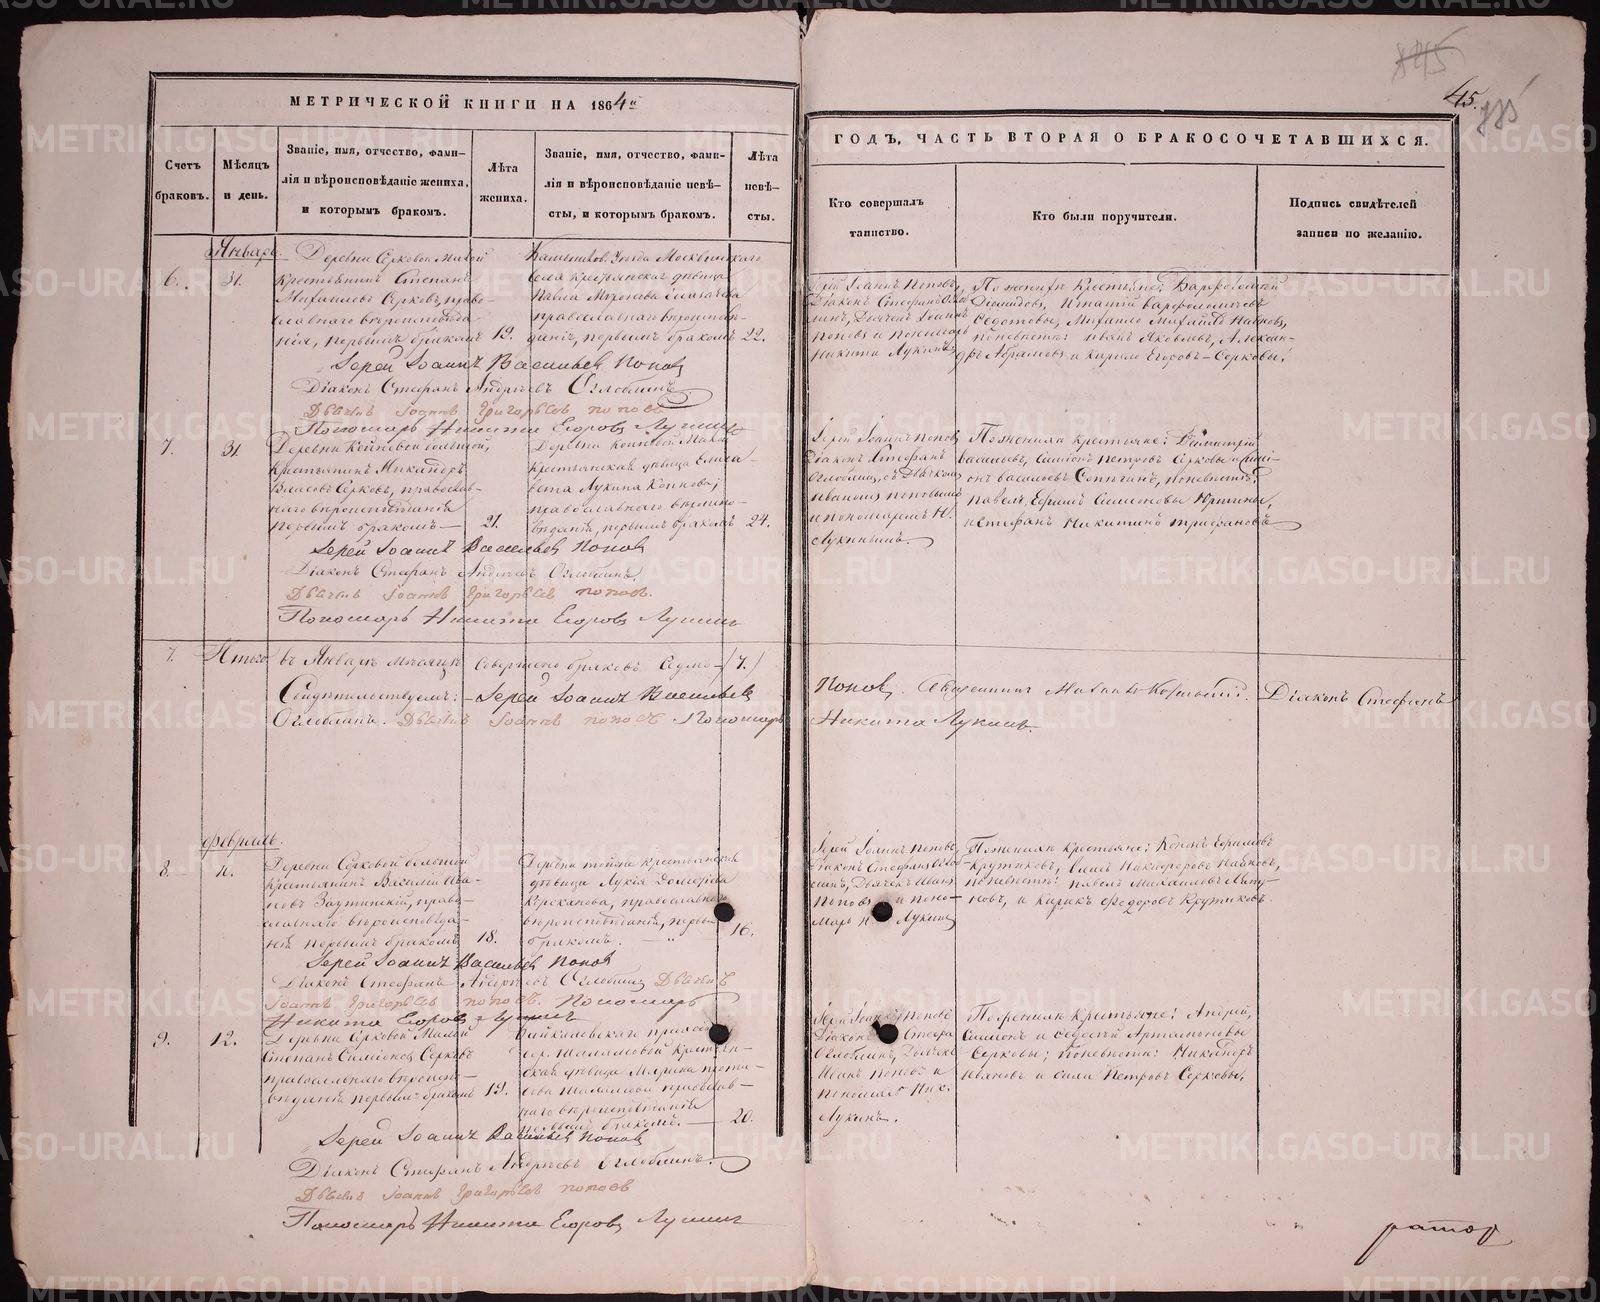 МЕТРИЧЕСКОЙ КНИГИ НА 1864 го
Счетъ браковъ.
Мѣсяцъ и день.
Званіе, имя, отчество, фами-
лія и вѣроисповѣданіе жениха,
и которымъ бракомъ.
Лѣта жениха.
Званіе, имя, отчество, фами-
лія и вѣроисповѣданіе невѣ-
сты, и которымъ бракомъ.
Лѣта невѣ-
сты.
45.
ГОДЪ, ЧАСТЬ ВТОРАЯ О БРАКОСОЧЕТАВШИХСЯ.
Кто совершалъ
таинство.
Кто были поручители.
Подпись свидѣтелей
записи по желанію.
Январь.
6.
31.
Деревни Серковой Малой
крестьянинъ Степанъ
Михаиловъ Серковъ, право-
славнаго вѣроисповѣда-
нія, первымъ бракомъ
19.
Уѣзда
села крестьянская дѣвица
православнаго вѣроиспов-
первымъ бракомъ
22.
Іерей Іоаннъ Поповъ,
Діаконъ Стефанъ Огло-
блинъ, Дьячекъ Іоаннъ
Поповъ и пономарь
Никита Лукинъ
По женихѣ крестьяне: Варфоломей
Демидовъ, Игнатій Варфоломеевъ
Михаило
по невѣстѣ: Иванъ Яковлевъ, Алексан-
дръ Абрамовъ и Кирило Егоровъ Серковы.
Іерей Іоаннъ Васильевъ Поповъ
Діаконъ Стефанъ Андреевъ Оглоблинъ
Дьячекъ Іоаннъ Григорьевъ Поповъ
Пономарь Никита Егоровъ Лукинъ
7.
31.
Деревни большой,
крестьянинъ Никаноръ
Власовъ Серковъ, православ-
наго вѣроисповѣданія
первымъ бракомъ
21.
Деревни Малой
крестьянская дѣвица Елиса-
вета Лукина
православнаго вѣроиспо-
вѣданія, первымъ бракомъ
24.
Іерей Іоаннъ Поповъ
Діаконъ Стефанъ
Оглоблинъ, съ Дьячкомъ
Иваномъ Поповымъ
и пономаремъ Н.
Лукинымъ.
По женихѣ крестьяне: Димитрій
Васильевъ, Симіонъ Петровъ Серковы и Сими-
онъ Васильевъ по невѣстѣ:
Павелъ, Ефимъ Симионовы
и Стефанъ Никитинъ Трифановъ
Іерей Іоаннъ Васильевъ Поповъ
Діаконъ Стефанъ Андреевъ Оглоблинъ.
Дьячекъ Іоаннъ Григорьевъ Поповъ.
Пономарь Никита Егоровъ Лукинъ
7.
Итого въ Январѣ мѣсяцѣ совершено браковъ Седмь (7.)
Свидѣтельствуемъ: Іерей Іоаннъ Васильевъ
Поповъ. Священникъ Діаконъ Стефанъ
Оглоблинъ. Дьячекъ Іоаннъ Поповъ Пономарь
Никита Лукинъ.
Февраль.
8.
11.
Деревни Серковой большой
крестьянинъ Василій Ива-
новъ право-
славнаго вѣроисповѣда-
нія первымъ бракомъ
18.
Деревни той же крестьянская
дѣвица Лукія
православнаго
вѣроисповѣданія, первы-
бракомъ.
16.
Іерей Іоаннъ Поповъ,
Діаконъ Стефанъ Огло-
блинъ, Дьячекъ Иванъ
Поповъ и поно-
марь Н. Лукинъ
По женихѣ крестьяне: Ефимовъ
Крутиковъ, Никифоровъ
по невѣстѣ: Павелъ Михаиловъ Ляпу-
новъ, и Кирикъ Федоровъ Крутиковъ.
Іерей Іоаннъ Васильевъ Поповъ
Діаконъ Стефанъ Андреевъ Оглоблинъ Дьячекъ
Іоаннъ Григорьевъ Поповъ. Пономарь
Никита Егоровъ Лукинъ
9.
12.
Деревни Серковой Малой
Степанъ Симионовъ Серковъ
православнаго вѣроиспо-
вѣданія первымъ бракомъ
19.
прихода
дер. крестьян-
ская дѣвица Марина
православ-
наго вѣроисповѣданія
первымъ бракомъ.
20.
Іерей Іоаннъ Поповъ
Діаконъ Стефанъ
Оглоблинъ, Дьячекъ
Иванъ Поповъ и
пономарь Ник:
Лукинъ.
По женихѣ крестьяне: Андрей,
Симионъ и Артамоновы
Серковы; по невѣстѣ: Никаноръ
Ивановъ и Сила Петровъ Серковы.
Іерей Іоаннъ Васильевъ Поповъ
Діаконъ Стефанъ Андреевъ Оглоблинъ.
Дьячекъ Іоаннъ Григорьевъ Поповъ
Пономарь Никита Егоровъ Лукинъ
METRIKI.GASO-URAL.RU